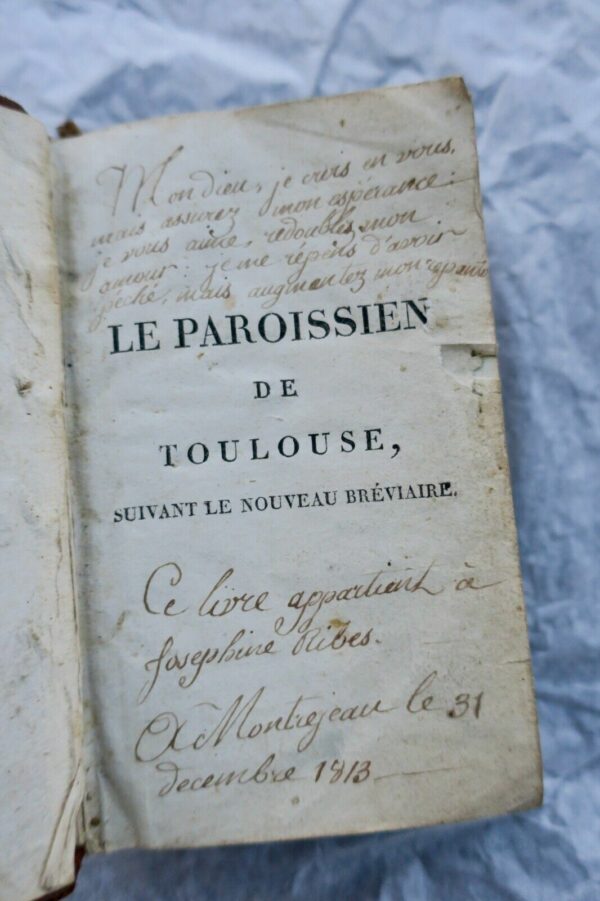 Mon dieu, je crois en vous,
mais assurez mon espérance :
je vous aime, redoubles mon
amour : je me répens d'avoir
péché, mais augmentez mon repentir
LE PAROISSIEN
DE
TOULOUSE,
SUIVANT LE NOUVEAU BRÉVIAIRE.
Ce livre appartient à
Josephine Ribes.
A Montrejeau le 31
decembre 1813